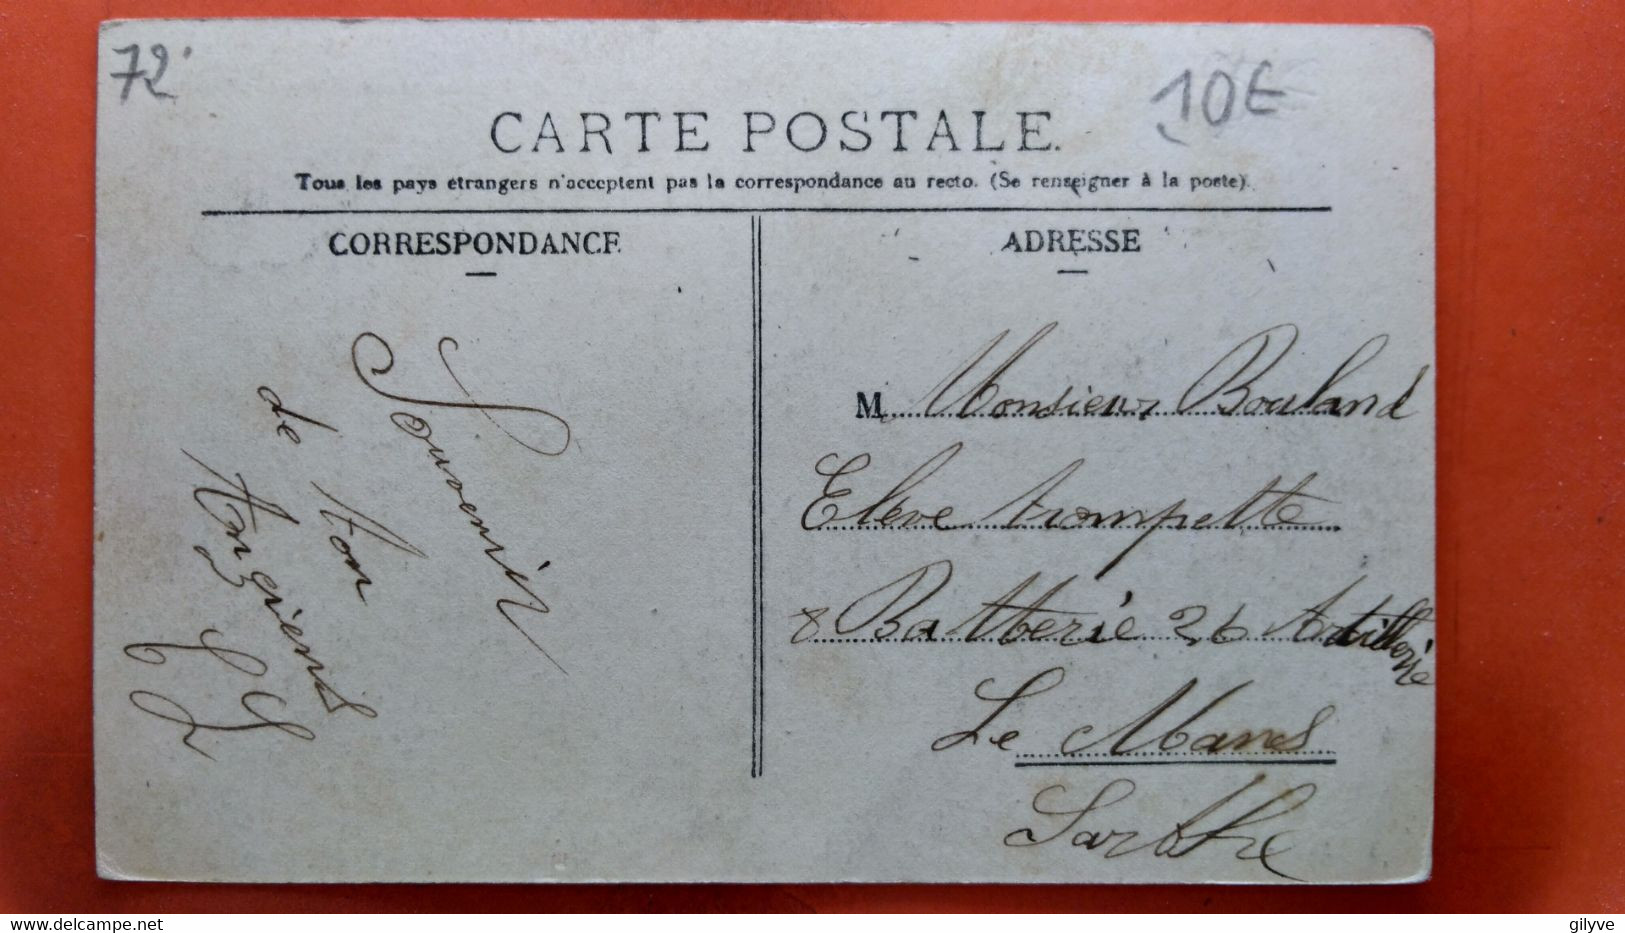 72
10€
CARTE POSTALE.
Tous les pays étrangers n'acceptent pas la correspondance au recto. (Se renseigner à la poste).
CORRESPONDANCE
Souvenir
de ton
ADRESSE
M. Monsieur Bouland
Eleve trompette
8 Batterie 26 Artillerie
Le Mans
Sarthe
delcampe.net
gilyve